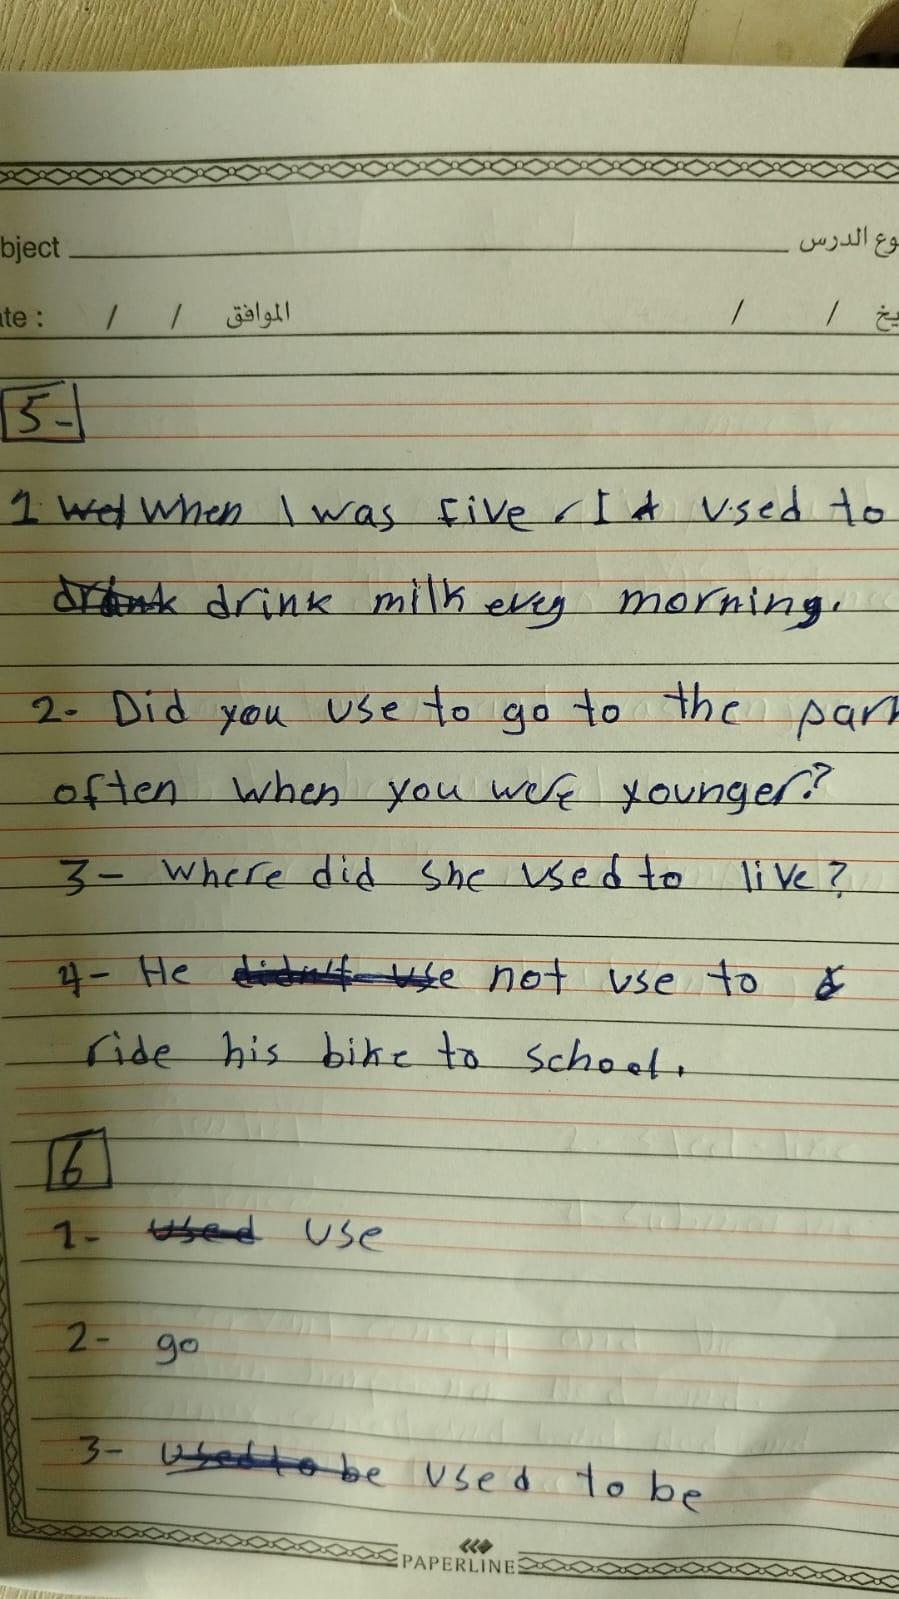 bject وع الدرس
ate : / / الموافق / / يخ
5-
1 When I was five, I used to
drink milk every morning.
2- Did you use to go to the park
often when you were younger?
3- Where did she used to live?
4- He not use to
ride his bike to school.
6
1- used use
2- go
3- used to be used to be
PAPERLINE